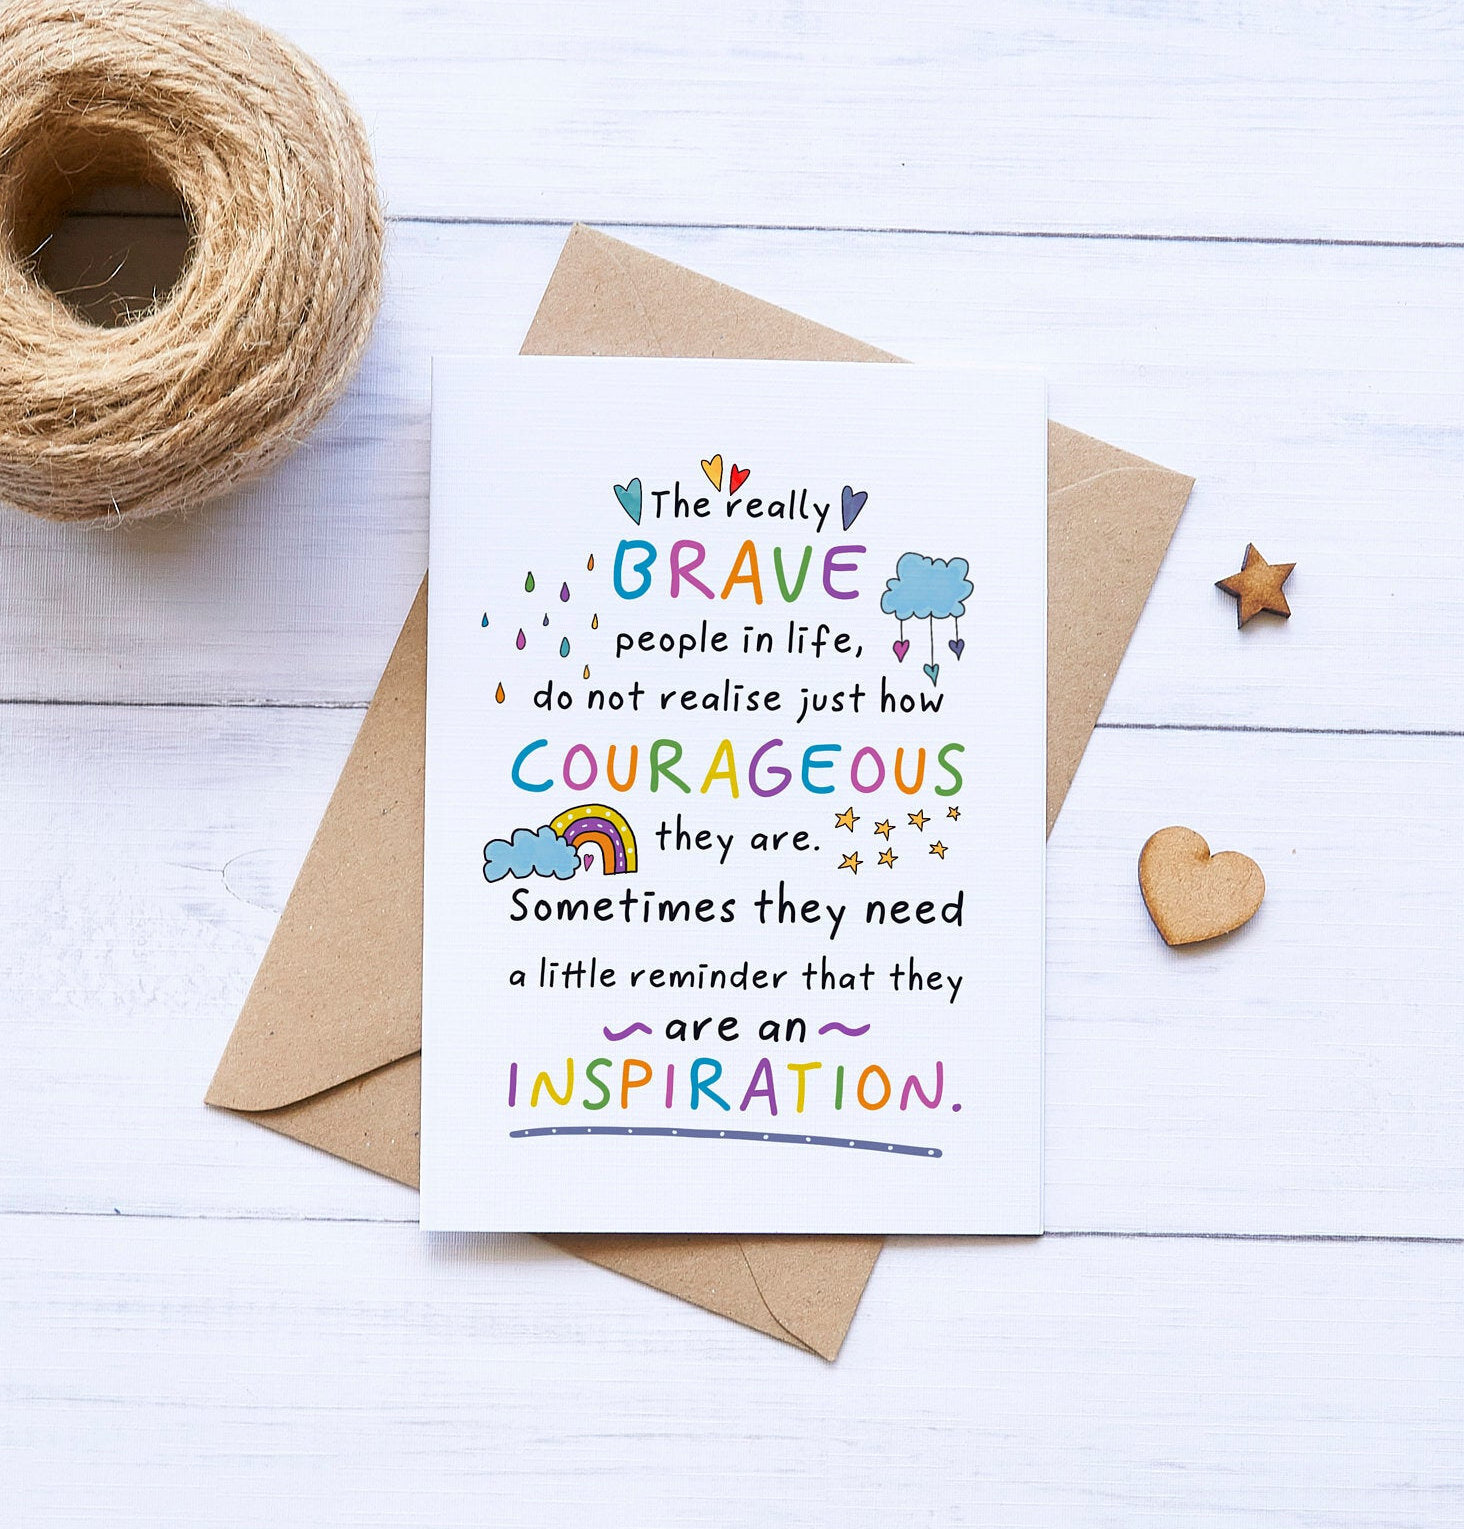 The really
BRAVE
people in life,
do not realise just how
COURAGEOUS
they are.
Sometimes they need
a little reminder that they
are an
INSPIRATION.